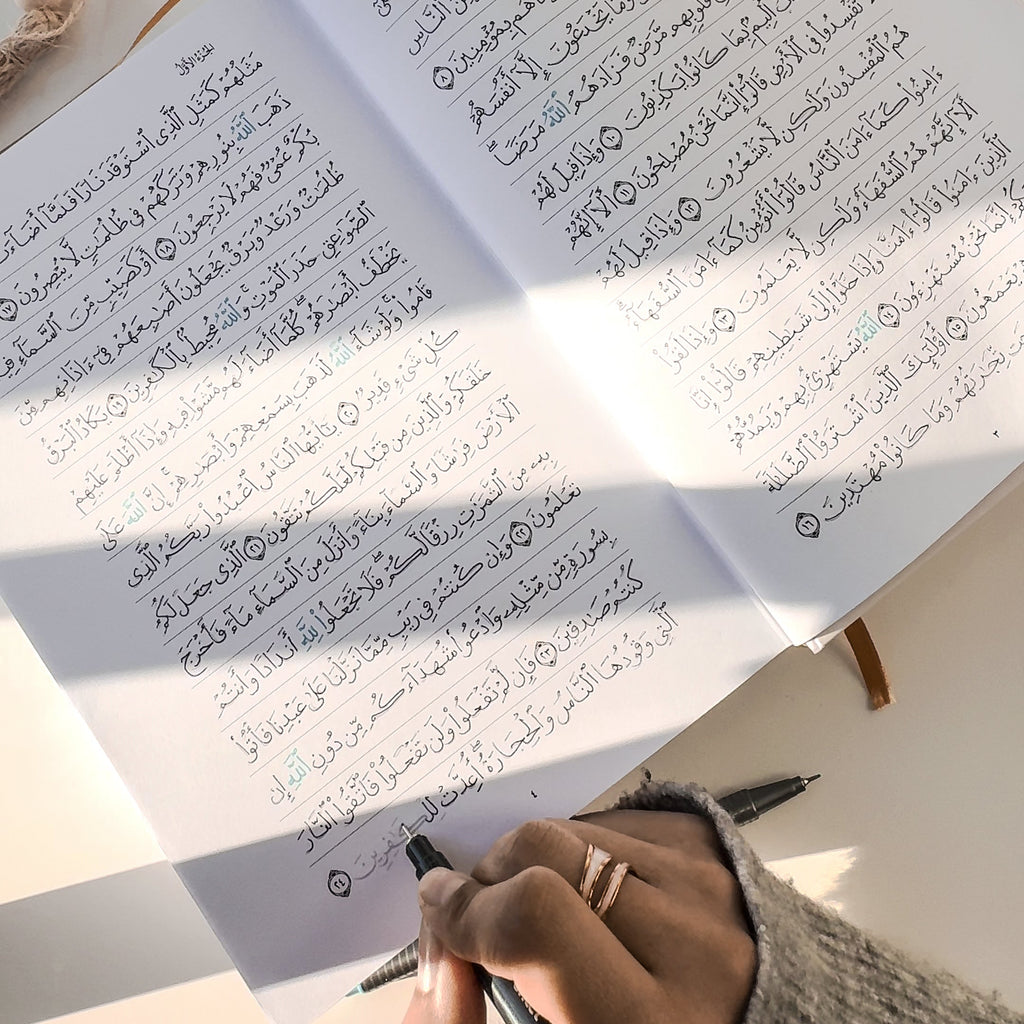 ٱلنَّاسِ
هُم بِمُؤْمِنِينَ ٨
وَمَا يَخْدَعُونَ إِلَّآ أَنفُسَهُمْ
قُلُوبِهِم مَّرَضٌ فَزَادَهُمُ ٱللَّهُ مَرَضًاۖ
أَلِيمٌۢ بِمَا كَانُوا۟ يَكْذِبُونَ ١٠ وَإِذَا قِيلَ لَهُمْ
تُفْسِدُوا۟ فِى ٱلْأَرْضِ قَالُوٓا۟ إِنَّمَا نَحْنُ مُصْلِحُونَ ١١ أَلَآ إِنَّهُمْ
هُمُ ٱلْمُفْسِدُونَ وَلَٰكِن لَّا يَشْعُرُونَ ١٢ وَإِذَا قِيلَ لَهُمْ
ءَامِنُوا۟ كَمَآ ءَامَنَ ٱلنَّاسُ قَالُوٓا۟ أَنُؤْمِنُ كَمَآ ءَامَنَ ٱلسُّفَهَآءُۗ
أَلَآ إِنَّهُمْ هُمُ ٱلسُّفَهَآءُ وَلَٰكِن لَّا يَعْلَمُونَ ١٣ وَإِذَا لَقُوا۟
ٱلَّذِينَ ءَامَنُوا۟ قَالُوٓا۟ ءَامَنَّا وَإِذَا خَلَوْا۟ إِلَىٰ شَيَٰطِينِهِمْ قَالُوٓا۟ إِنَّا
إِنَّمَا نَحْنُ مُسْتَهْزِءُونَ ١٤ ٱللَّهُ يَسْتَهْزِئُ بِهِمْ وَيَمُدُّهُمْ
يَعْمَهُونَ ١٥ أُو۟لَٰٓئِكَ ٱلَّذِينَ ٱشْتَرَوُا۟ ٱلضَّلَٰلَةَ
تِّجَٰرَتُهُمْ وَمَا كَانُوا۟ مُهْتَدِينَ ١٦
الجزء الأول
مَثَلُهُمْ كَمَثَلِ ٱلَّذِى ٱسْتَوْقَدَ نَارًا فَلَمَّآ أَضَآءَتْ
ذَهَبَ ٱللَّهُ بِنُورِهِمْ وَتَرَكَهُمْ فِى ظُلُمَٰتٍ لَّا يُبْصِرُونَ ١٧
بُكْمٌ عُمْىٌ فَهُمْ لَا يَرْجِعُونَ ١٨ أَوْ كَصَيِّبٍ مِّنَ ٱلسَّمَآءِ فِيهِ
ظُلُمَٰتٌ وَرَعْدٌ وَبَرْقٌ يَجْعَلُونَ أَصَٰبِعَهُمْ فِىٓ ءَاذَانِهِم مِّنَ
ٱلصَّوَٰعِقِ حَذَرَ ٱلْمَوْتِۚ وَٱللَّهُ مُحِيطٌۢ بِٱلْكَٰفِرِينَ ١٩ يَكَادُ ٱلْبَرْقُ
يَخْطَفُ أَبْصَٰرَهُمْۖ كُلَّمَآ أَضَآءَ لَهُم مَّشَوْا۟ فِيهِ وَإِذَآ أَظْلَمَ عَلَيْهِمْ
قَامُوا۟ۚ وَلَوْ شَآءَ ٱللَّهُ لَذَهَبَ بِسَمْعِهِمْ وَأَبْصَٰرِهِمْۚ إِنَّ ٱللَّهَ عَلَىٰ
كُلِّ شَىْءٍ قَدِيرٌ ٢٠ يَٰٓأَيُّهَا ٱلنَّاسُ ٱعْبُدُوا۟ رَبَّكُمُ ٱلَّذِى
خَلَقَكُمْ وَٱلَّذِينَ مِن قَبْلِكُمْ لَعَلَّكُمْ تَتَّقُونَ ٢١ ٱلَّذِى جَعَلَ لَكُمُ
ٱلْأَرْضَ فِرَٰشًا وَٱلسَّمَآءَ بِنَآءً وَأَنزَلَ مِنَ ٱلسَّمَآءِ مَآءً فَأَخْرَجَ
بِهِۦ مِنَ ٱلثَّمَرَٰتِ رِزْقًا لَّكُمْۖ فَلَا تَجْعَلُوا۟ لِلَّهِ أَندَادًا وَأَنتُمْ
تَعْلَمُونَ ٢٢ وَإِن كُنتُمْ فِى رَيْبٍ مِّمَّا نَزَّلْنَا عَلَىٰ عَبْدِنَا فَأْتُوا۟
بِسُورَةٍ مِّن مِّثْلِهِۦ وَٱدْعُوا۟ شُهَدَآءَكُم مِّن دُونِ ٱللَّهِ إِن
كُنتُمْ صَٰدِقِينَ ٢٣ فَإِن لَّمْ تَفْعَلُوا۟ وَلَن تَفْعَلُوا۟ فَٱتَّقُوا۟ ٱلنَّارَ
ٱلَّتِى وَقُودُهَا ٱلنَّاسُ وَٱلْحِجَارَةُۖ أُعِدَّتْ لِلْكَٰفِرِينَ ٢٤
٤